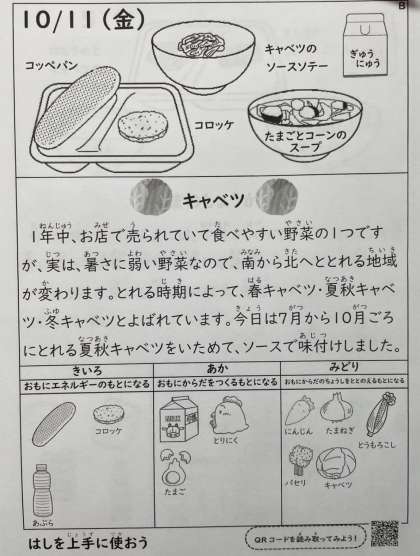 B
10/11(金)
コッペパン
キャベツの
ソースソテー
ぎゅう
にゅう
コロッケ
たまごとコーンの
スープ
キャベツ
1年中、お店で売られていて食べやすい野菜の1つです
が、実は、暑さに弱い野菜なので、南から北へととれる地域
が変わります。とれる時期によって、春キャベツ・夏秋キャベ
ツ・冬キャベツとよばれています。今日は7月から10月ごろ
にとれる夏秋キャベツをいためて、ソースで味付けしました。
きいろ
おもにエネルギーのもとになる
コロッケ
あぶら
あか
おもにからだをつくるもとになる
MILK
とりにく
たまご
みどり
おもにからだのちょうしをととのえるもとになる
にんじん
たまねぎ
とうもろこし
パセリ
キャベツ
はしを上手に使おう
QRコードを読み取ってみよう!